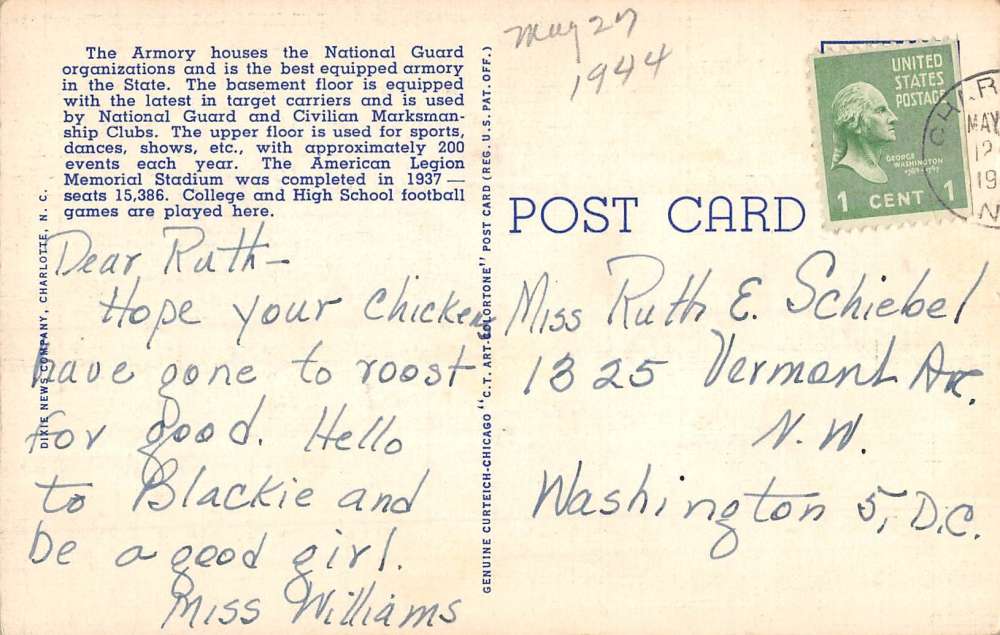 The Armory houses the National Guard
organizations and is the best equipped armory
in the State. The basement floor is equipped
with the latest in target carriers and is used
by National Guard and Civilian Marksman-
ship Clubs. The upper floor is used for sports,
dances, shows, etc., with approximately 200
events each year. The American Legion
Memorial Stadium was completed in 1937 —
seats 15,386. College and High School football
games are played here.
DIXIE NEWS COMPANY, CHARLOTTE, N. C.
Dear Ruth—
Hope your chicken
have gone to roost
for good. Hello
to Blackie and
be a good girl.
Miss Williams
GENUINE CURTEICH-CHICAGO "C.T. ART-COLORTONE" POST CARD (REG. U.S. PAT. OFF.)
May 27
1944
UNITED
STATES
POSTAGE
GEORGE
WASHINGTON
1789-1797
1 CENT 1
CHAR
MAY
12
19
N
POST CARD
Miss Ruth E. Schiebel
1325 Vermont Ave.
N.W.
Washington 5, D.C.